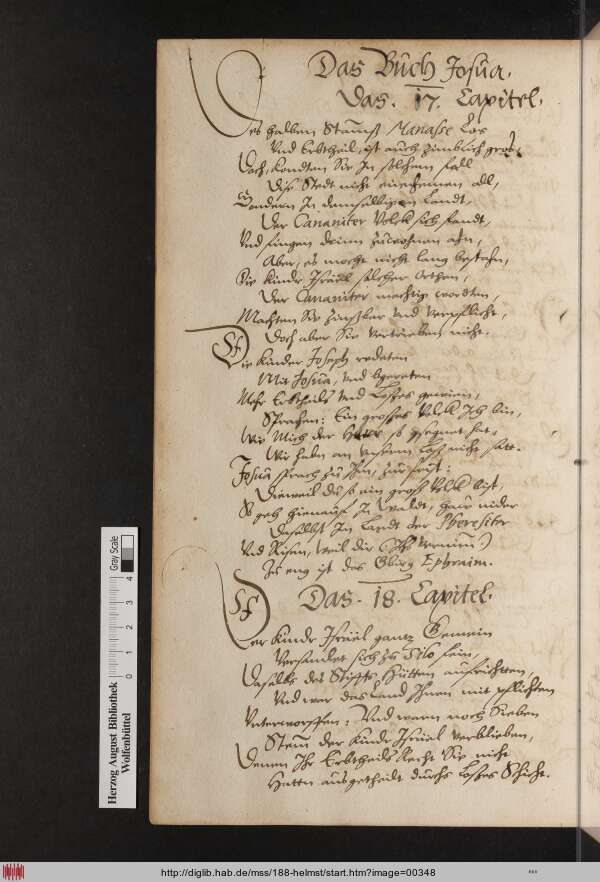 Das Buch Josua.
Das. 17. Capitel.
Des halben Stams Manasse Los
Und Erbtheil, ist auch zimblich gros,
Doch, kondten Sie In solchem fall
Dise Stedt nicht einehemen all,
Sondern In demselbigen Landt,
Der Cananiter Volck sich fandt,
Und fingen drinn zuwohnen ahn,
Aber, es mocht nicht lang bestahn,
Die Kinder Israël solcher Orthen,
Der Cananiter mechtig wordten,
Machten Sie Zinßbar und verpflicht,
Doch aber Sie vertrieben nicht.
Die Kinder Joseph redeten
Mit Josua, und
Mehr Erbtheils und Loßes
Sprachen: Ein grosses Volck Ich bin,
Wie Mich der so gsegnet hat,
Wir habn an unserm Loß nicht satt.
Josua sprach zu Ihn,
Dieweil du so ein groß Volck bist,
So geh hienauf In Waldt, nider
Daselbst In Landt der Pheresiter
Und Risen, weil dir
Zu eng ist das Gbirg Ephraim.
Das. 18. Capitel.
Der Kinder Israël gantz Gemein
Versamlet sich zu Silo fein,
Daselbs des Stiffts Hütten aufrichten,
Und war das Land Ihnen mit pflichten
Unterworffen: Und warn noch Sieben
Stem der Kinder Israel verblieben,
Denen Ihr Erbtheils Recht Sie nicht
Hattn ausgetheilt durchs Loßes Schicht.
Herzog August Bibliothek
Wolfenbüttel
0 1 2 3 4
Gray Scale
http://diglib.hab.de/mss/188-helmst/start.htm?image=00348